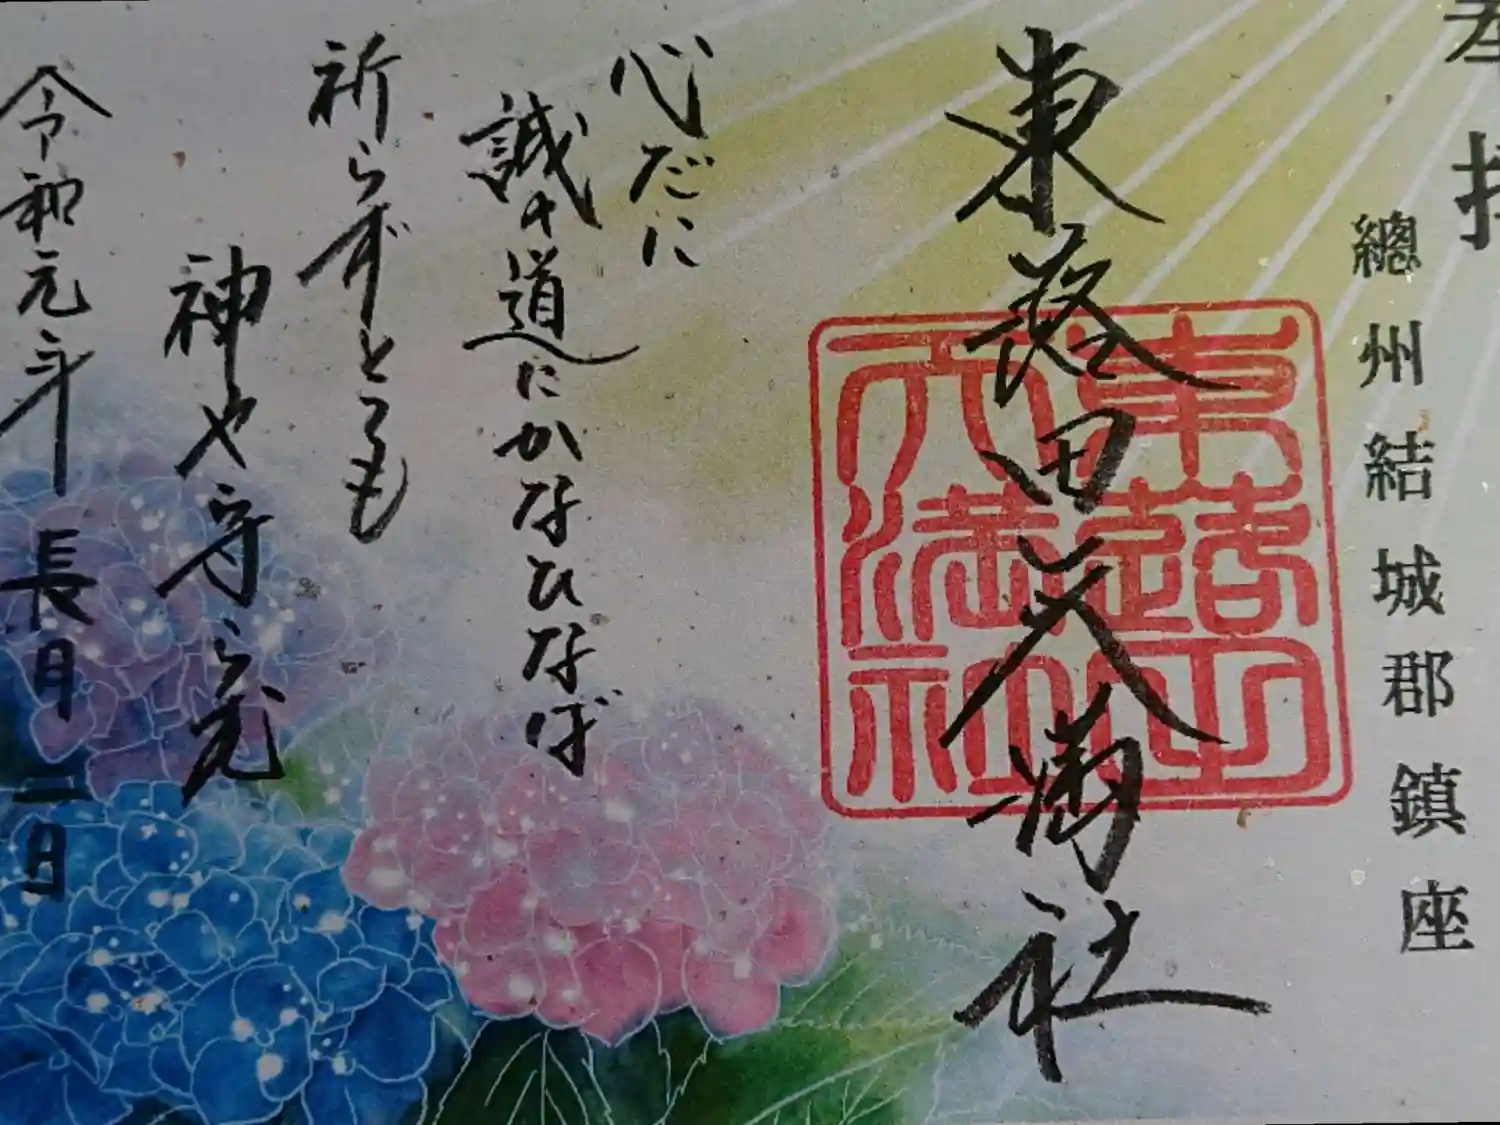 奉拝
總州結城郡鎮座
東蕗田天満社
東蕗田天満社
心だに
誠の道にかなひなば
祈らずとても
神や守らむ
令和元年長月二日